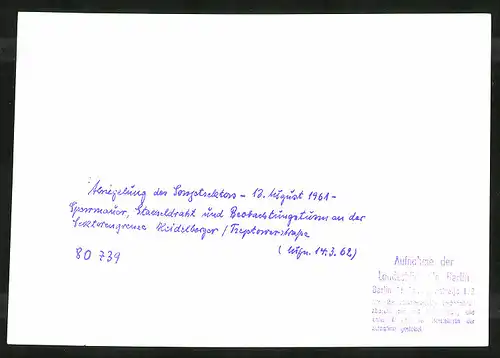 Abriegelung des Sowjetsektors - 13. August 1961 -
Sperrmauer, Stacheldraht und Beobachtungsturm an der
Sektorengrenze Heidelberger / Treptowerstraße
(Aufn. 14.3.62)
80 739
Aufnahme der
Landesbildstelle Berlin
Berlin